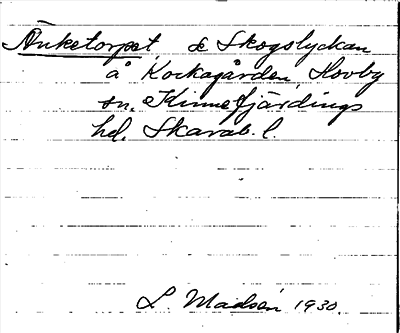 Änketorpet, de Skogslyckan
å Kockagården, Hovby
sn. Kinnefjärdings
hd. Skarab. l.
L. Madsén 1930.